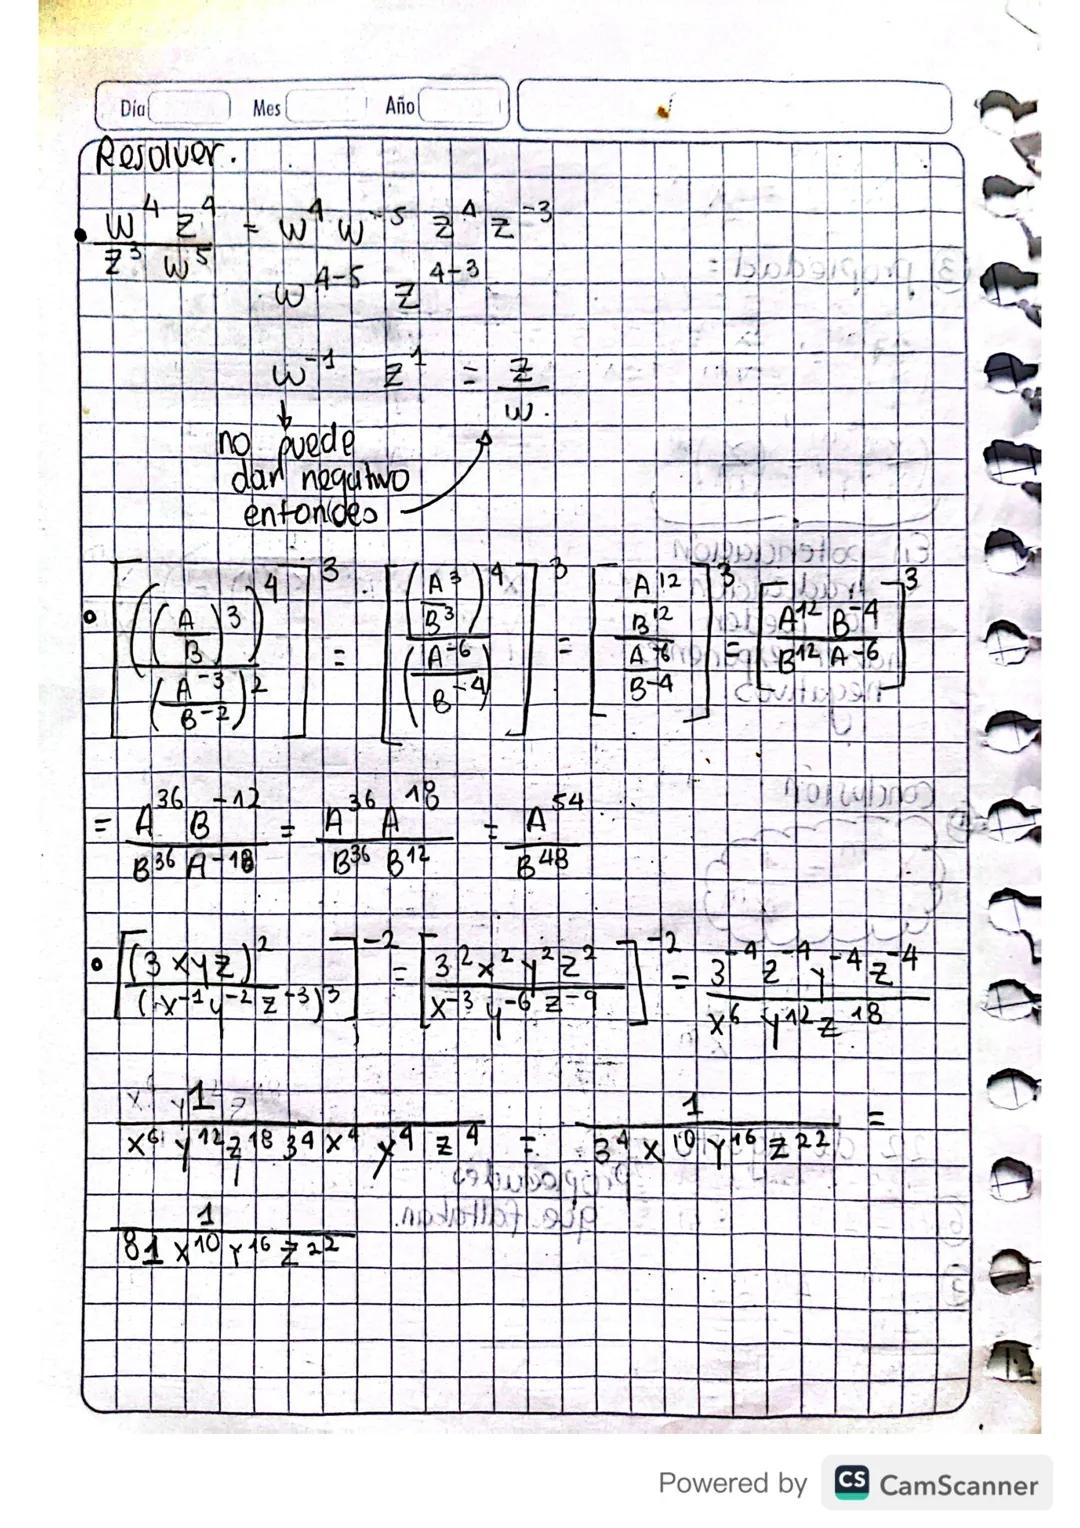 Día Mes Año
Resolver.
• w⁴ z⁴ / z³ w⁵ = w⁴ w⁻⁵ z⁴ z⁻³
w⁴⁻⁵ z⁴⁻³
w⁻¹ z¹ = z / w.
↓
no puede
dar negativo
entonces
• [((A/B)³)⁴ / (A⁻³/B⁻²)²]³ = [(A³/B³)⁴ / (A⁻⁶/B⁻⁴)]³ = [A¹²/B¹² / A⁻⁶/B⁻⁴]³ = [A¹² B⁻⁴ / B¹² A⁻⁶]³
= A³⁶ B⁻¹² / B³⁶ A⁻¹⁸ = A³⁶ A¹⁸ / B³⁶ B¹² = A⁵⁴ / B⁴⁸
• [(3xyz)² / (x⁻¹y⁻²z⁻³)³]⁻² = [3²x²y²z² / x⁻³ y⁻⁶ z⁻⁹]⁻² = 3⁻⁴ z⁻⁴ y⁻⁴ z⁻⁴ / x⁶ y¹² z¹⁸
1 / x⁶ y¹² z¹⁸ 3⁴ x⁴ y⁴ z⁴ = 1 / 3⁴ x¹⁰ y¹⁶ z²² =
1 / 81 x¹⁰ y¹⁶ z²²
Powered by CS CamScanner